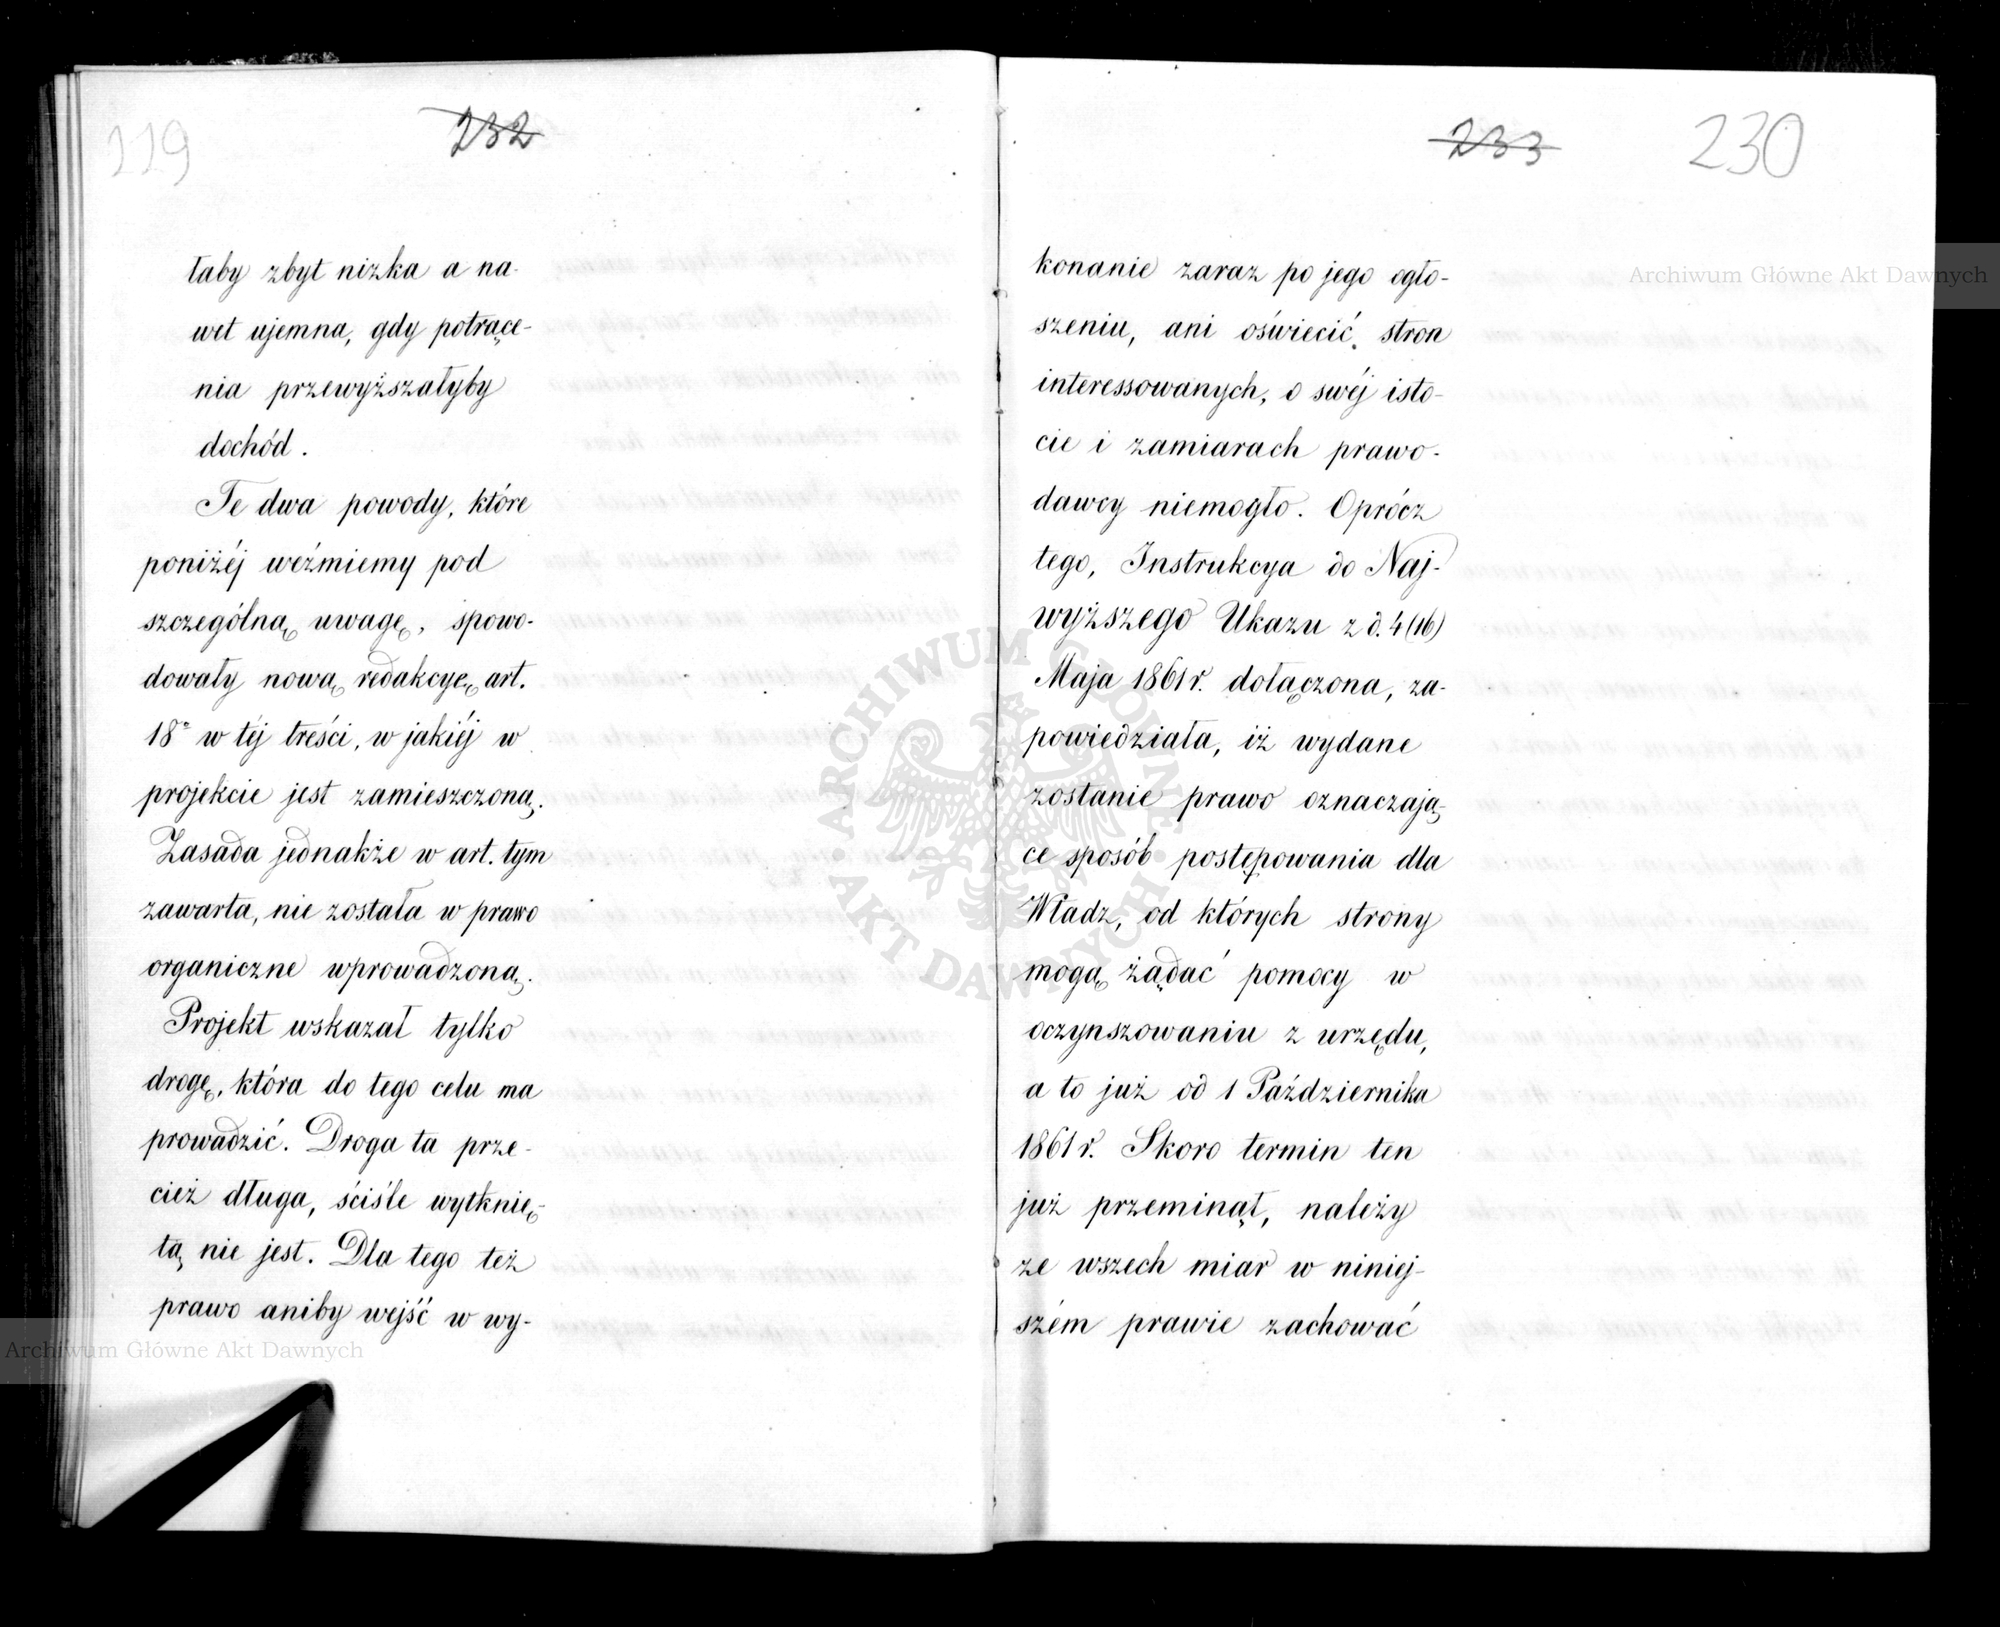 119
232
łaby zbyt nizka a na-
wet ujemna, gdy potrące-
nia przewyższałyby
dochód.
Te dwa powody, które
poniżéj weźmiemy pod
szczególną uwagę, spowo-
dowały nową redakcyę art.
18° w téj treści, w jakiéj w
projekcie jest zamieszczoną.
Zasada jednakże w art. tym
zawarta, nie została w prawo
organiczne wprowadzoną.
Projekt wskazał tylko
drogę, która do tego celu ma
prowadzić. Droga ta prze-
cież długa, ściśle wytknię-
tą nie jest. Dla tego też
prawo aniby wejść w wy-
233
230
konanie zaraz po jego ogło-
szeniu, ani oświecić stron
interessowanych, o swéj isto-
cie i zamiarach prawo-
dawcy niemogło. Oprócz
tego, Instrukcya do Naj-
wyższego Ukazu z d. 4 (16)
Maja 1861 r. dołączona, za-
powiedziała, iż wydane
zostanie prawo oznaczają-
ce sposób postępowania dla
Władz, od których strony
mogą żądać pomocy w
oczynszowaniu z urzędu,
a to już od 1 Października
1861 r. Skoro termin ten
już przeminął, należy
ze wszech miar w niniej-
szém prawie zachować
Archiwum Główne Akt Dawnych
Archiwum Główne Akt Dawnych
ARCHIWUM GŁÓWNE AKT DAWNYCH